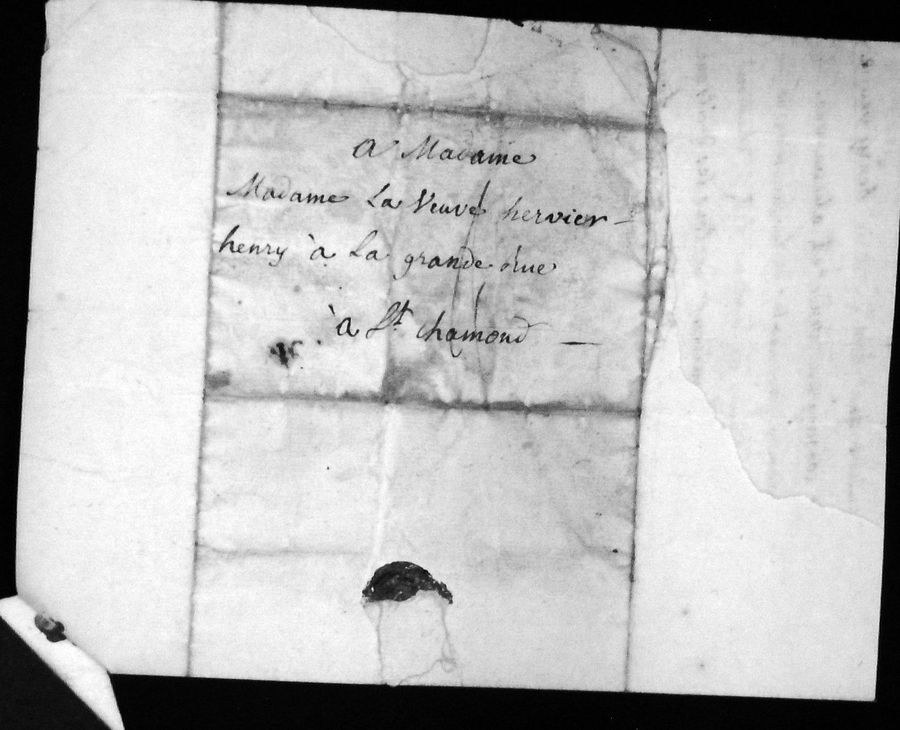 A Madame
Madame La Veuve hervier-
henry à La grande rue
à St. chamond —